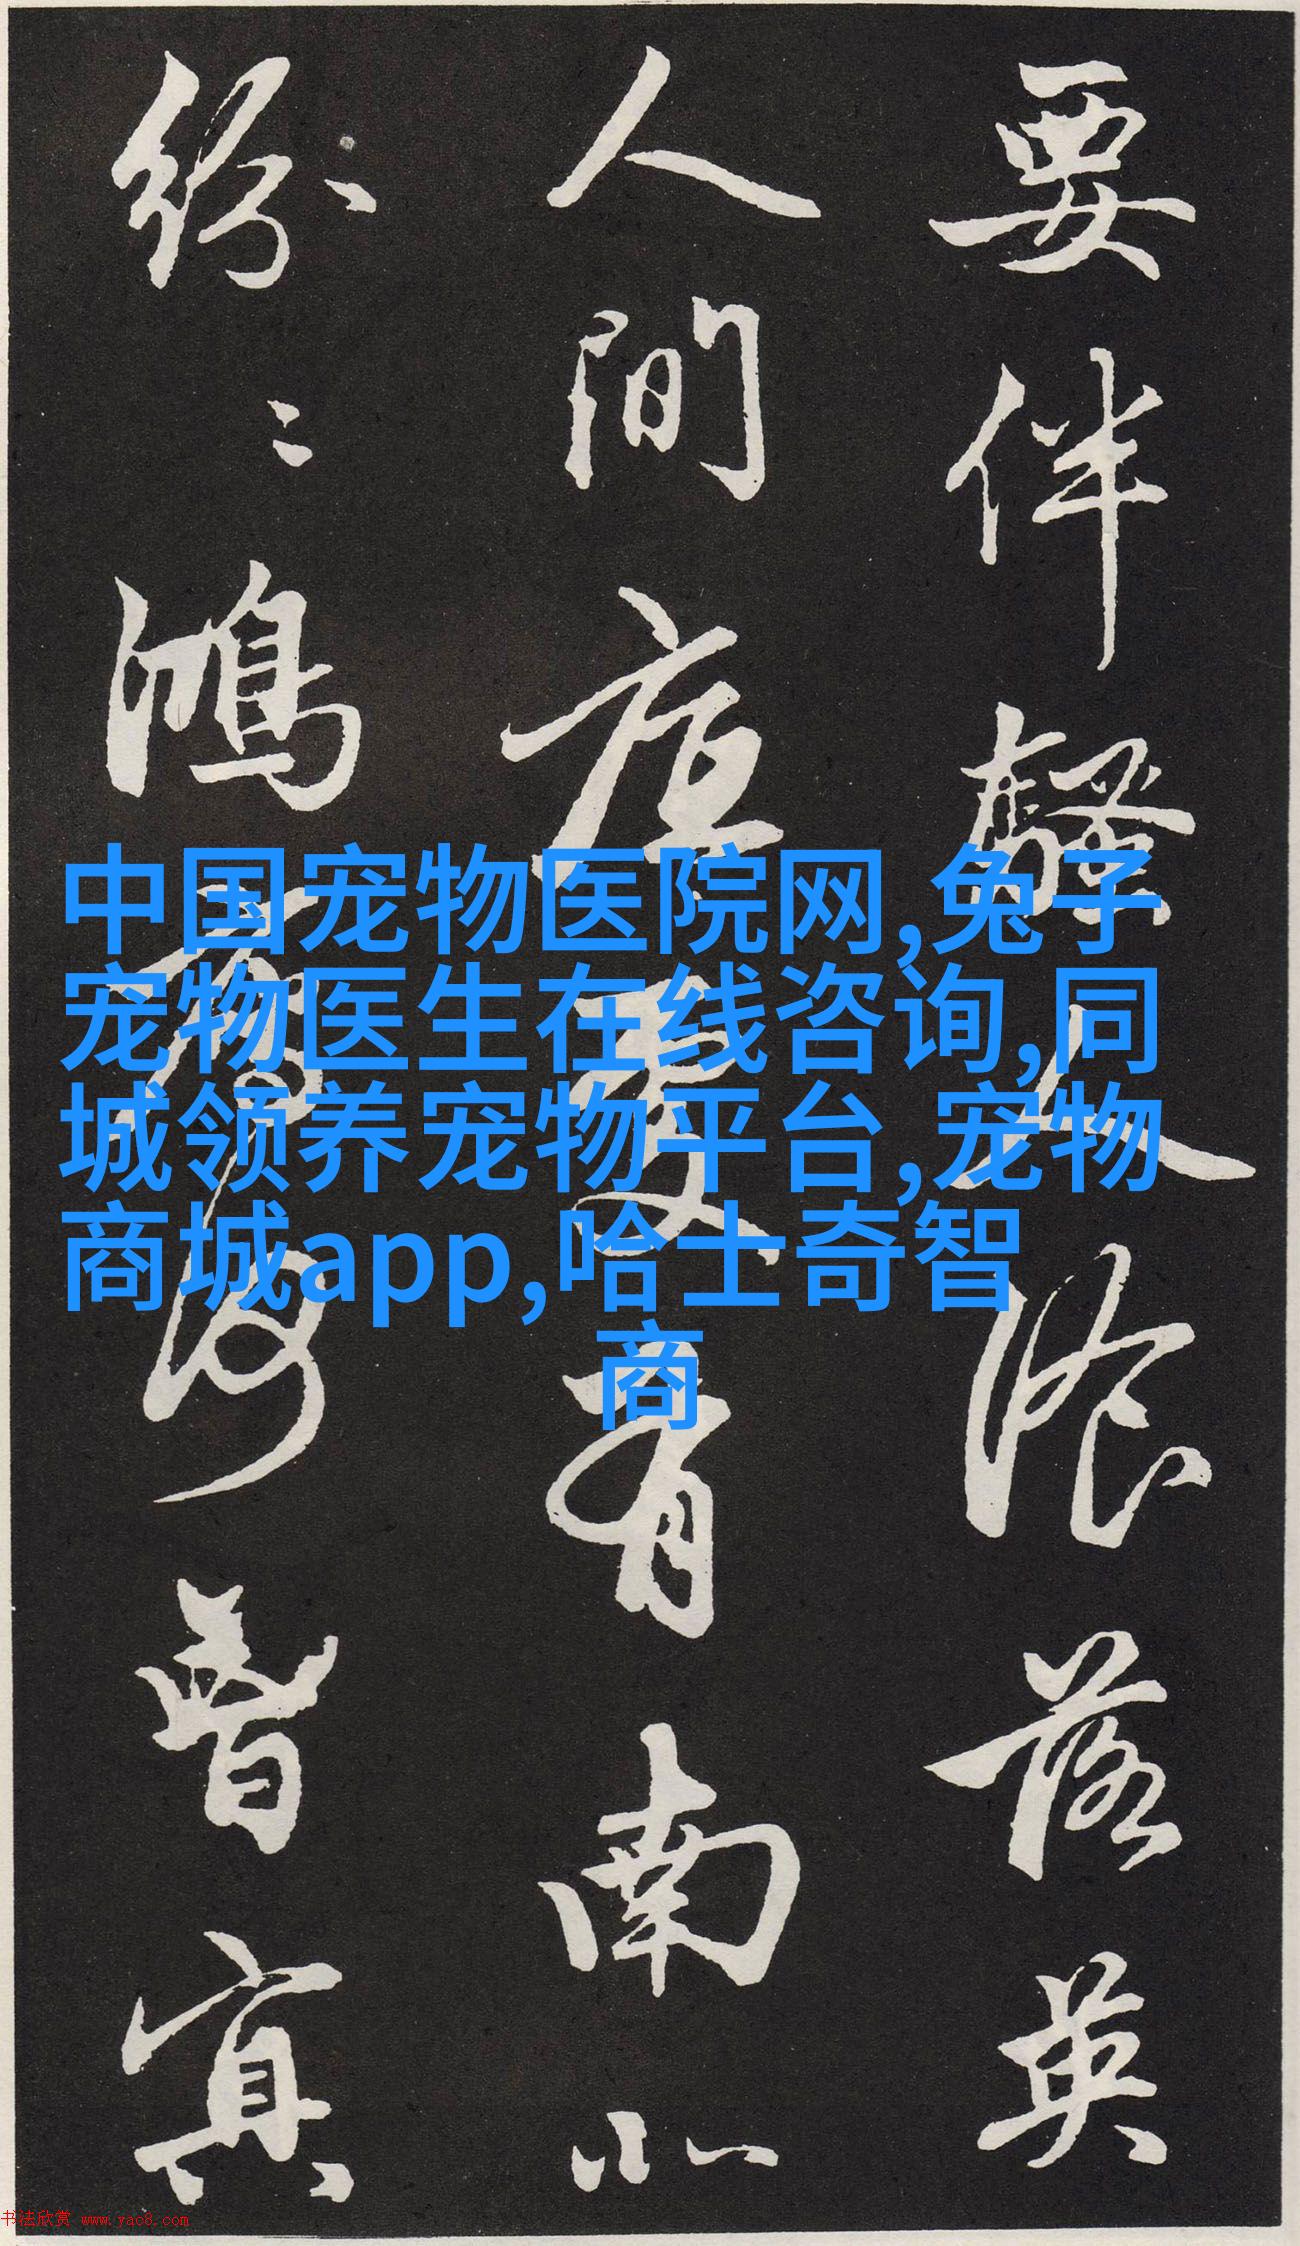 要伴騷人湌落英
人間底處有南北
紛〻鴻雁何曾冥
中国宠物医院网,兔子
宠物医生在线咨询,同
城领养宠物平台,宠物
商城app,哈士奇智
商
书法欣赏 www.yac8.com